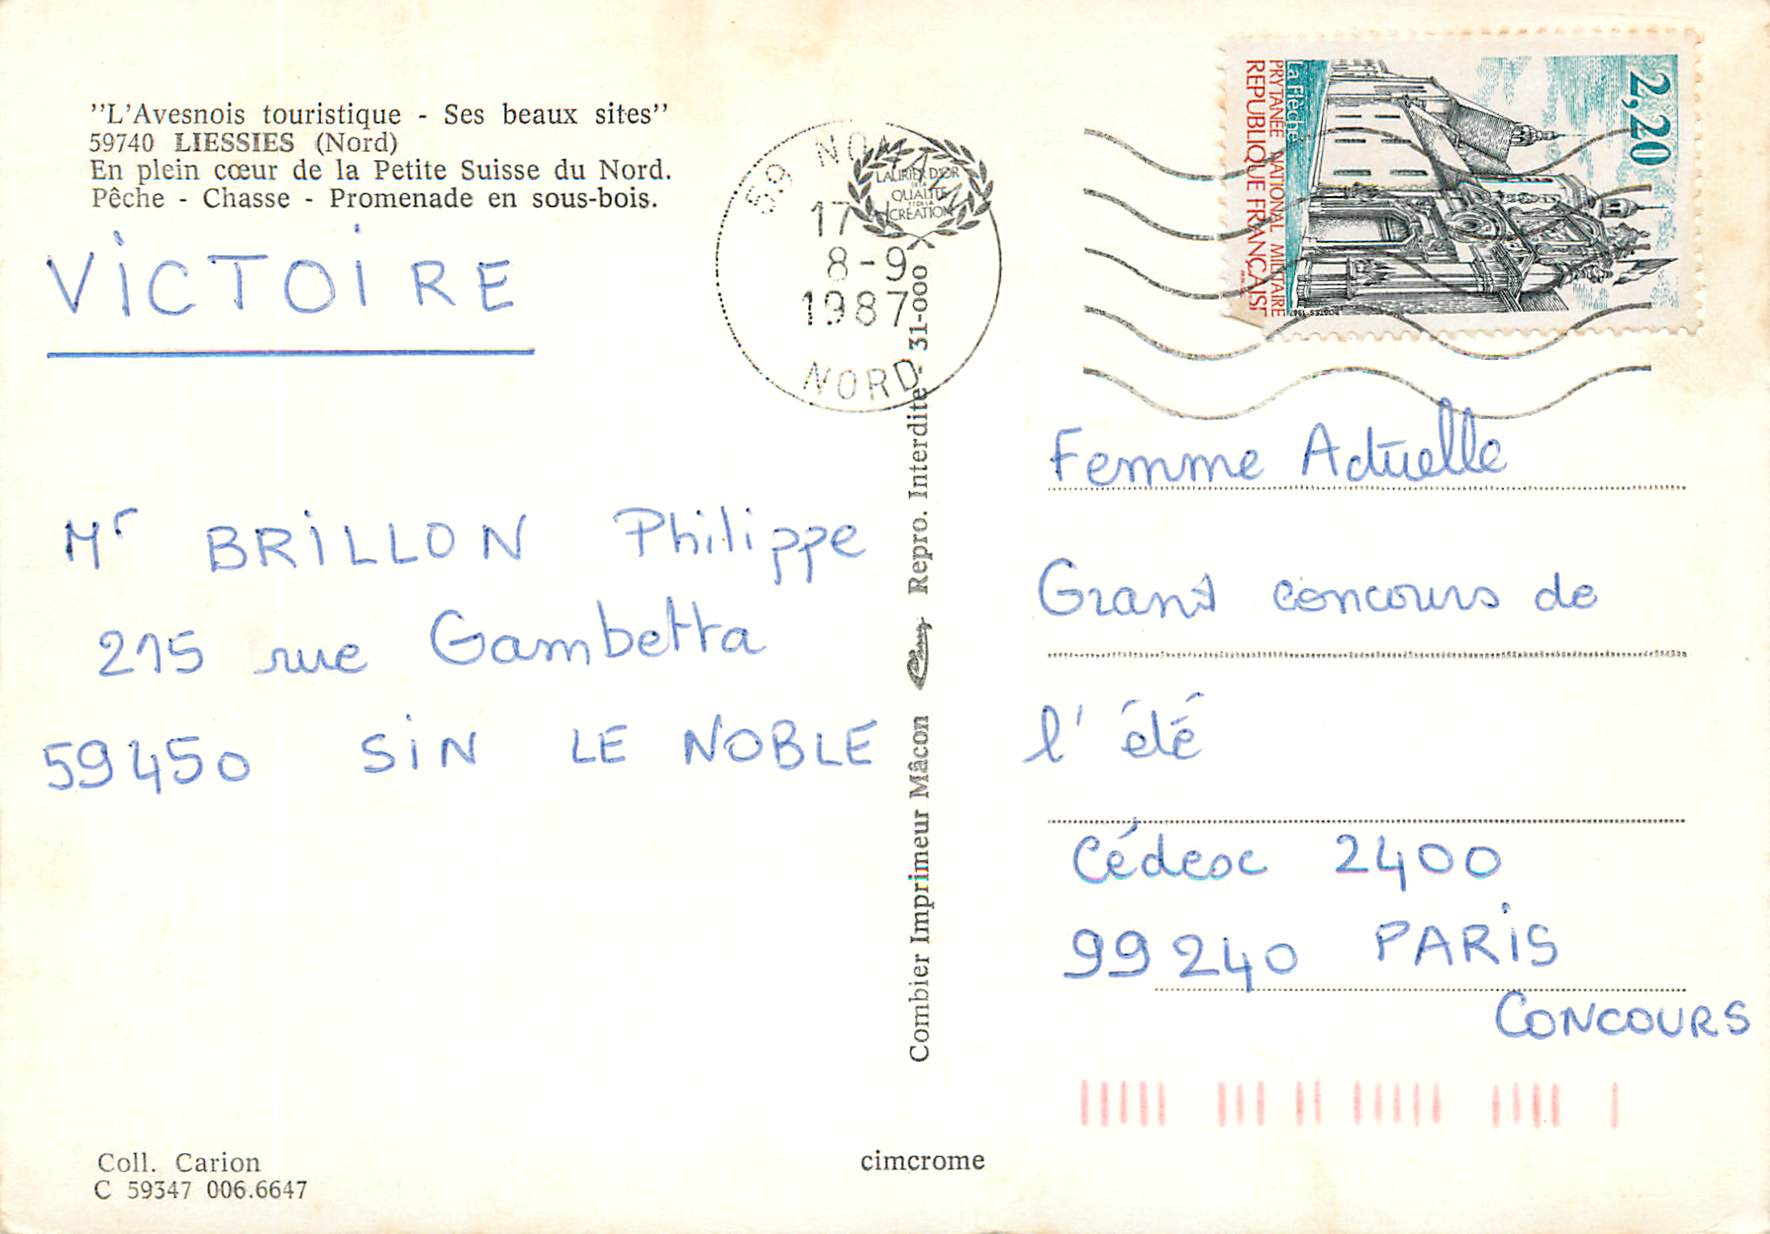 "L'Avesnois touristique - Ses beaux sites"
59740 LIESSIES (Nord)
En plein cœur de la Petite Suisse du Nord.
Pêche - Chasse - Promenade en sous-bois.
VICTOIRE
Mr BRILLON Philippe
215 rue Gambetta
59450 SIN LE NOBLE
Coll. Carion
C 59347 006.6647
59 NORD
17 H
8-9
1987
NORD
LAURIER D'OR
DE LA
QUALITÉ
ET DE LA
CRÉATION
Combier Imprimeur Mâcon Repro. Interdite 31-000
cimcrome
2,20
La Flèche
PRYTANÉE NATIONAL MILITAIRE
REPUBLIQUE FRANÇAISE
POSTES 1987
Femme Actuelle
Grand concours de
l'été
Cédex 2400
99240 PARIS
CONCOURS